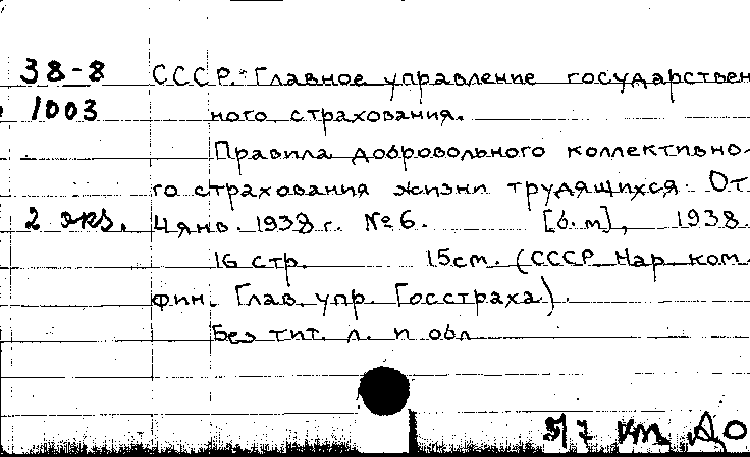 38-8 СССР. Главное управление государствен
1003 ного страхования.
Правила добровольного коллективно-
го страхования жизни трудящихся. От
2 экз. 4 янв. 1938 г. № 6. [б.м], 1938.
16 стр. 15 см. (СССР Нар. ком.
фин. Глав. упр. Госстраха).
Без тит. л. и обл